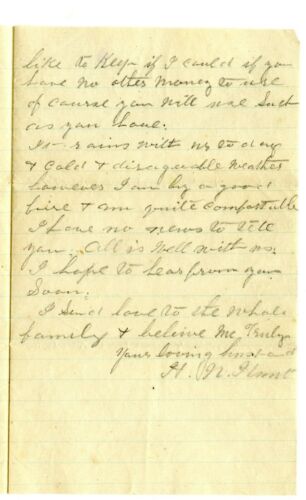 like to Keep if I could if you
have no other money to use
of course you will use such
as you have.
It rains with us to day
& Cold & disagreeable weather
however I am by a good
fire & am quite comfortable
I have no news to tell
you. All is well with us.
I hope to hear from you
Soon.
I Send love to the whole
family & believe me, Truly
Your loving husband